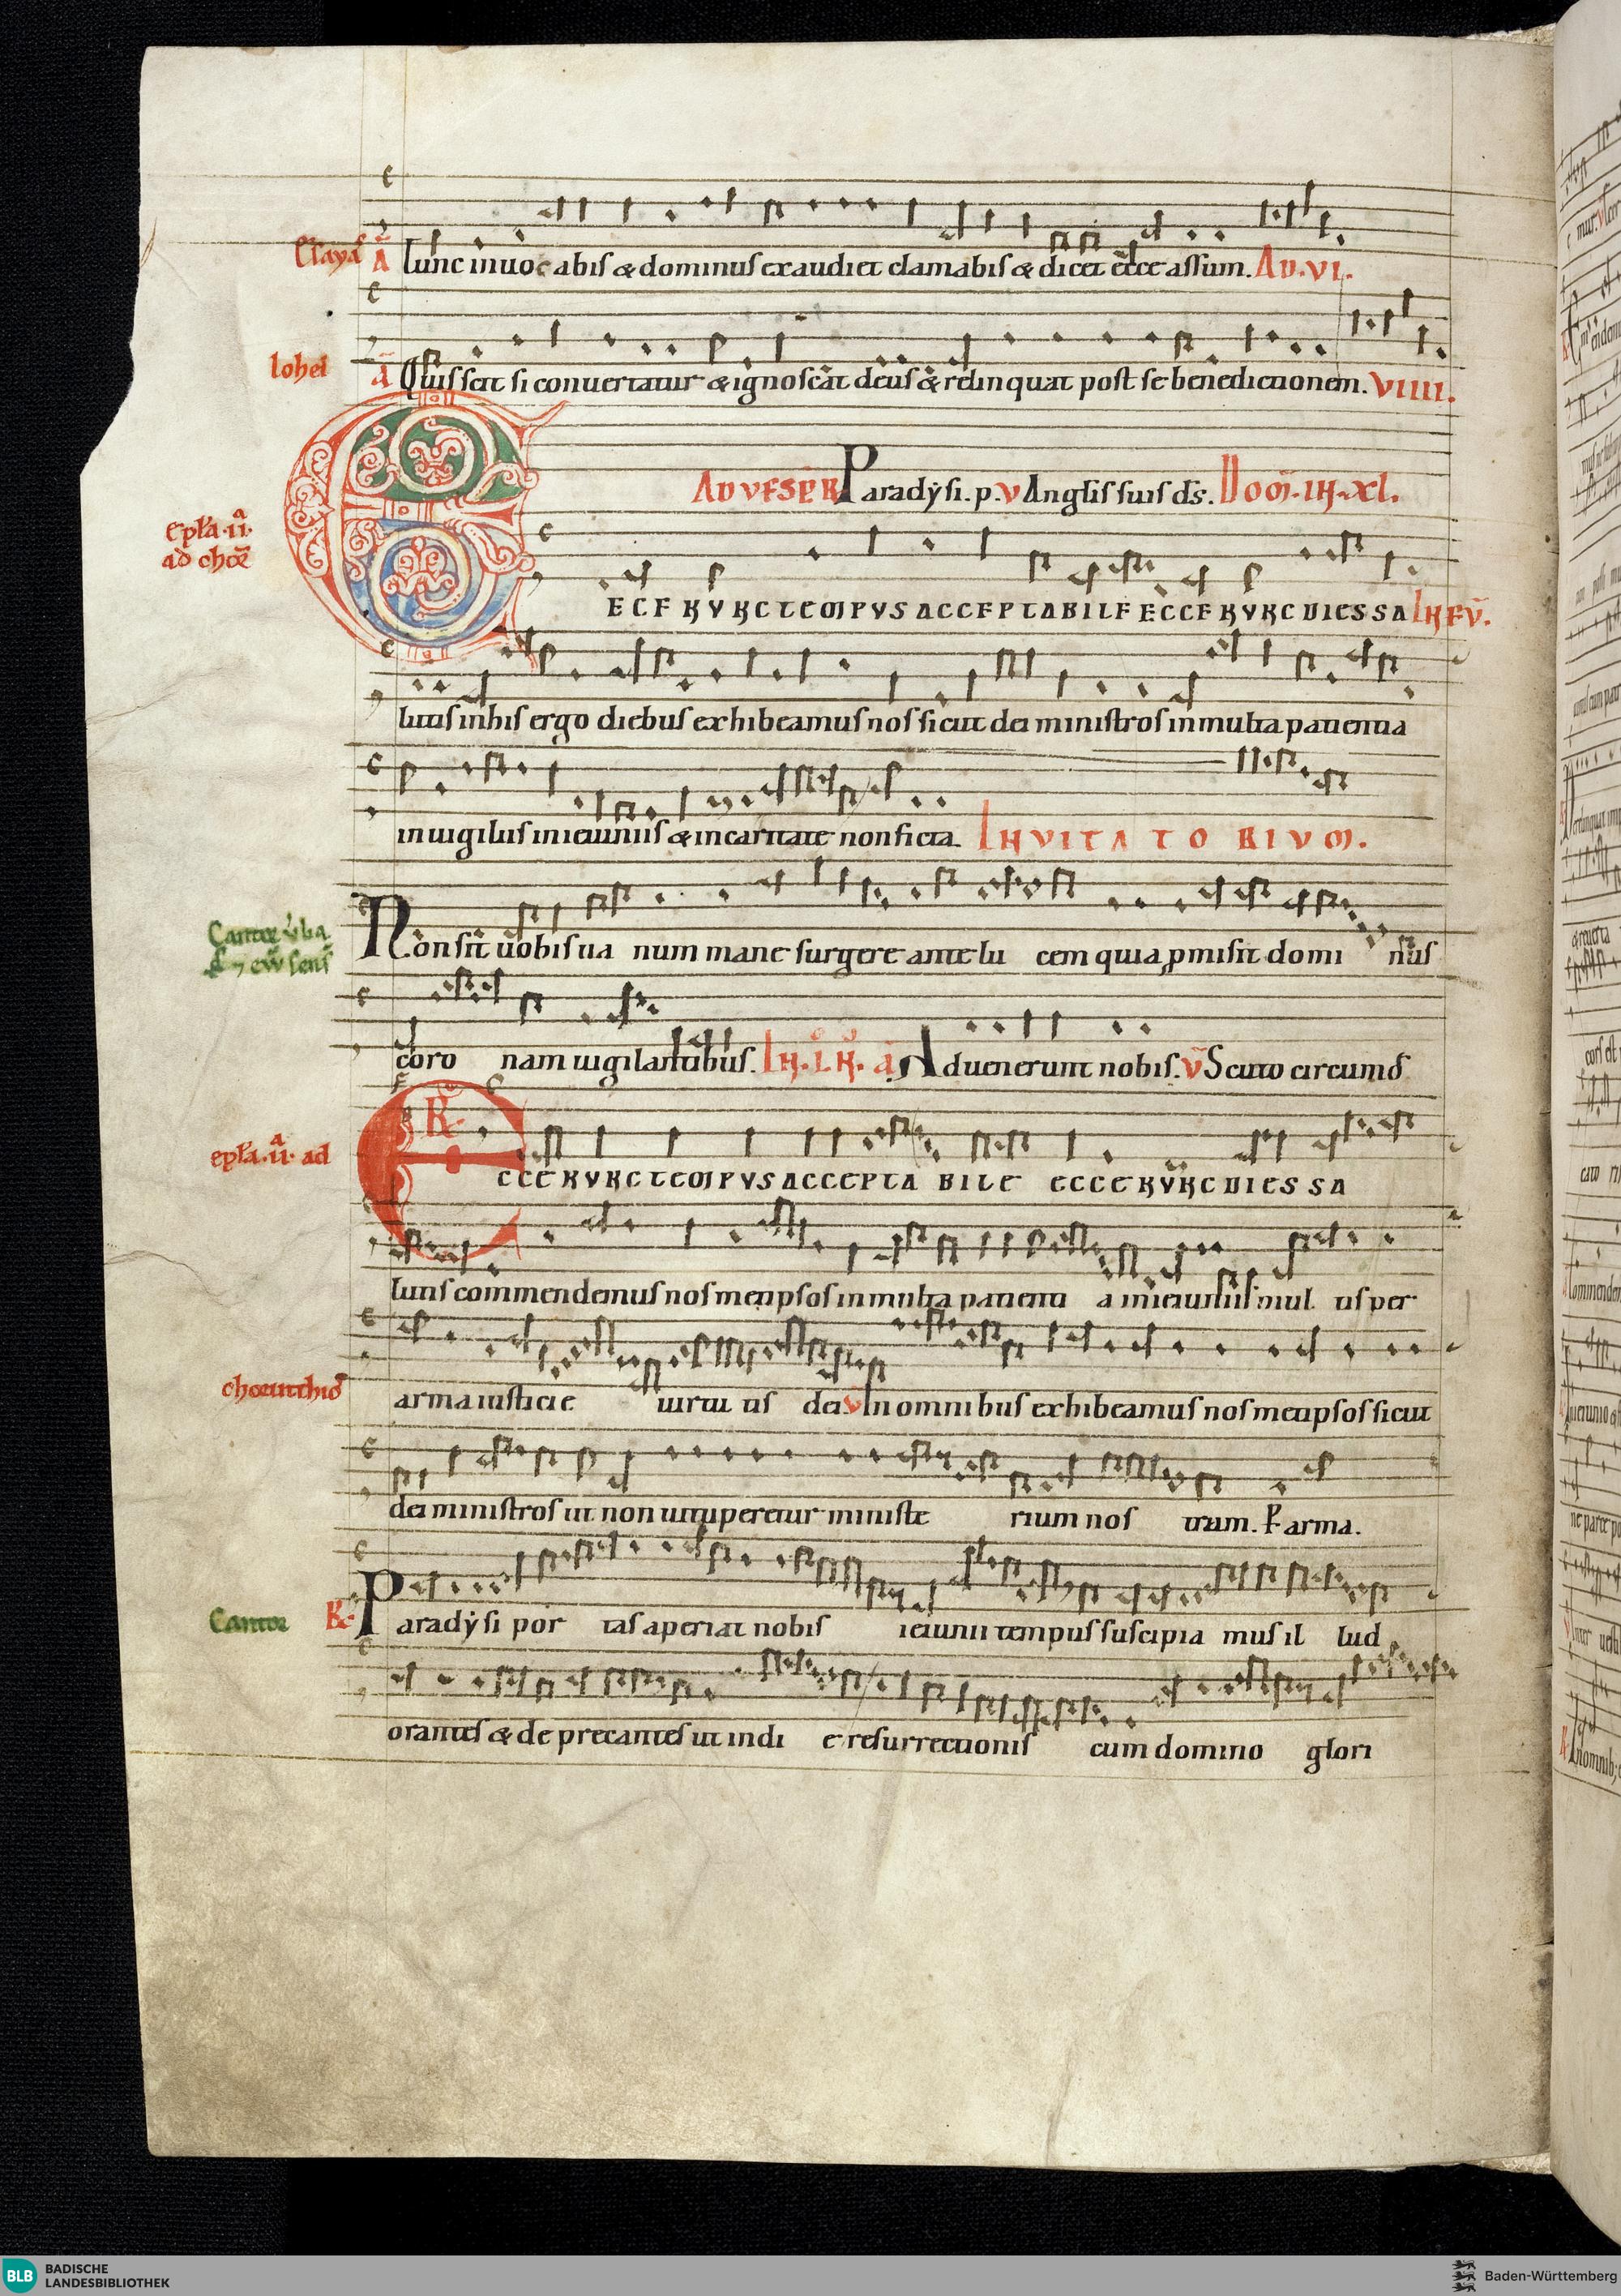 Esayas a Tunc inuocabis & dominus exaudiet clamabis & dicet ecce assum. AD. VI.
Iohel a Quis scit si conuertatur & ignoscat deus & relinquat post se benedictionem. VIIII.
AD VESPER Paradysi. p. V Anglis suis ds. DOM. IN. XL.
epla. ii. a
ad chor
ECE NVNC TEMPVS ACCEPTABILE ECCE NVNC DIES SA IN EV.
lutis in his ergo diebus exhibeamus nos sicut dei ministros in multa patientia
in uigiliis in ieiuniis & in caritate non ficta. INVITATORIVM.
Cantor
Non sit uobis ua num mane surgere ante lu cem quia pmisit domi nus
coro nam uigilantibus. IN. I. N. a Aduenerunt nobis. V Scuto circumd
epla. ii. a ad
R
ECCE NVNC TEMPVS ACCEPTA BILE ECCE NVNC DIES SA
lutis commendemus nos metipsos in multa patienti a in ieiuniis mul tis per
arma iusticie uirtu tis dei V In omnibus exhibeamus nos metipsos sicut
dei ministros ut non uituperetur ministe rium nos trum. P arma.
Cantor R Paradysi por tas aperiat nobis ieiunii tempus suscipia mus il lud
orantes & de precantes ut in di e resurrectionis cum domino glori
BLB BADISCHE
LANDESBIBLIOTHEK
Baden-Württemberg